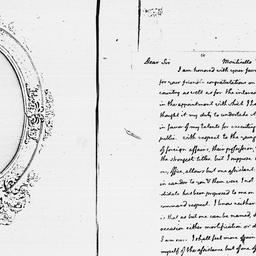 Dear Sir Monticello
I am honored with your favor
for your friendly congratulations on
country as well as for the interest
in the appointment with which I ha
thought it my duty to undertake it
in favor of your talents for executing
public. with respect to the
of foreign affairs, their profession,
the strongest titles. but I suppose
office, allows but one assistant.
in candor to you there were not
didate has been proposed to me on
command respect. I know neither
is that as but one can be named,
occasion either mortification or d
I am now. I shall feel more
myself of the assistance but of one of